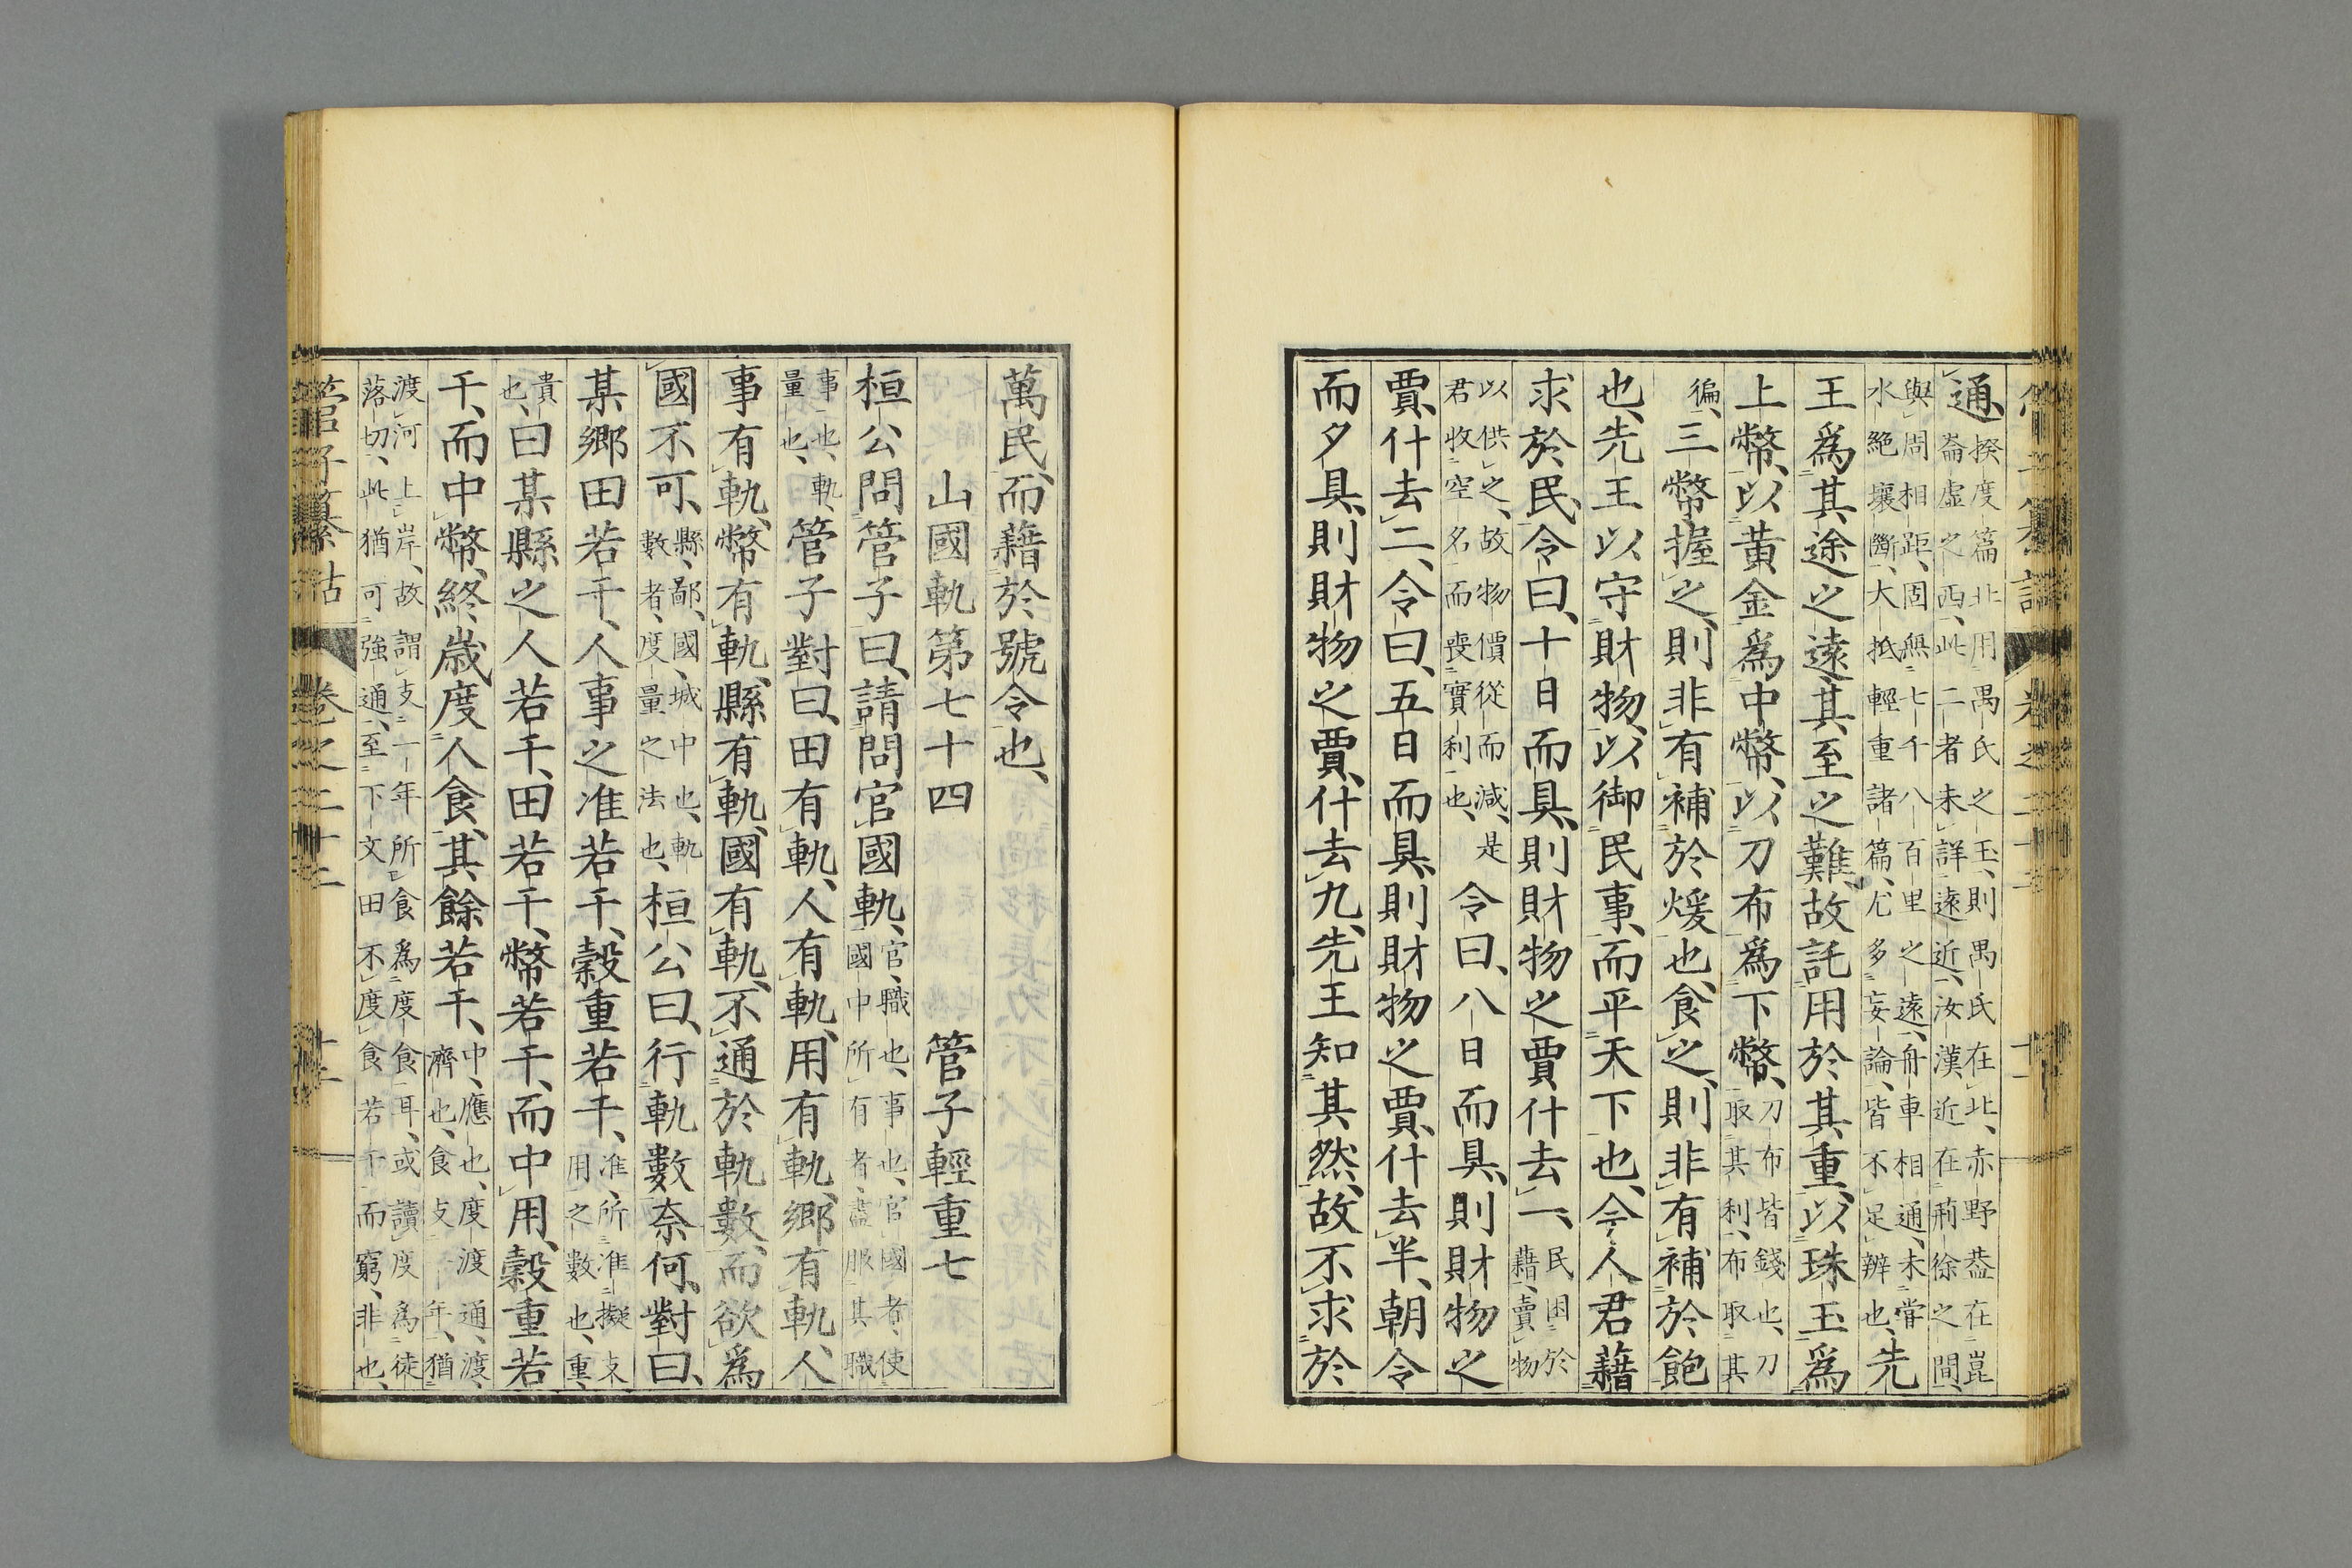 通、揆度篇北用禺氏之玉、則禺氏在北、赤野葢在崑
崙虛之西、此二者未詳遠近、汝漢近在荊徐之間、
與周相距、固無七千八百里之遠、舟車相通、未嘗
水絶壤斷、大抵輕重諸篇、尤多妄論、皆不足辨也、先
王爲其途之遠、其至之難、故託用於其重、以珠玉爲
上幣、以黃金爲中幣、以刀布爲下幣、刀布皆錢也、刀
取其利、布取其
徧、三幣握之、則非有補於煖也、食之、則非有補於飽
也、先王以守財物、以御民事、而平天下也、今人君藉
求於民、令曰、十日而具、則財物之賈什去一、民困於
藉、賣物
以供之、故物價從而減、是
君收空名而喪實利也、令曰、八日而具、則財物之
賈、什去二、令曰、五日而具、則財物之賈、什去半、朝令
而夕具、則財物之賈、什去九、先王知其然、故不求於
萬民、而藉於號令也、
山國軌第七十四 管子輕重七
桓公問管子曰、請問官國軌、官、職也、事也、官國者、使
國中所有者、盡服其職
事也、軌、
量也、管子對曰、田有軌、人有軌、用有軌、鄉有軌、人
事有軌、幣有軌、縣有軌、國有軌、不通於軌數、而欲爲
國不可、縣、鄙、國、城中也、軌
數者、度量之法也、桓公曰、行軌數奈何、對曰、
某鄉田若干、人事之准若干、穀重若干、准、所准擬支
用之數也、重、
貴
也、曰某縣之人若干、田若干、幣若干、而中用、穀重若
干、而中幣、終歲度人食、其餘若干、中、應也、度渡通、渡、
濟也、食支一年、猶
渡河上岸、故謂支一年所食爲度食耳、或讀度爲徒
落切、此猶可強通、至下文田不度食若干而窮、非也、
管子纂詁 卷之二十二